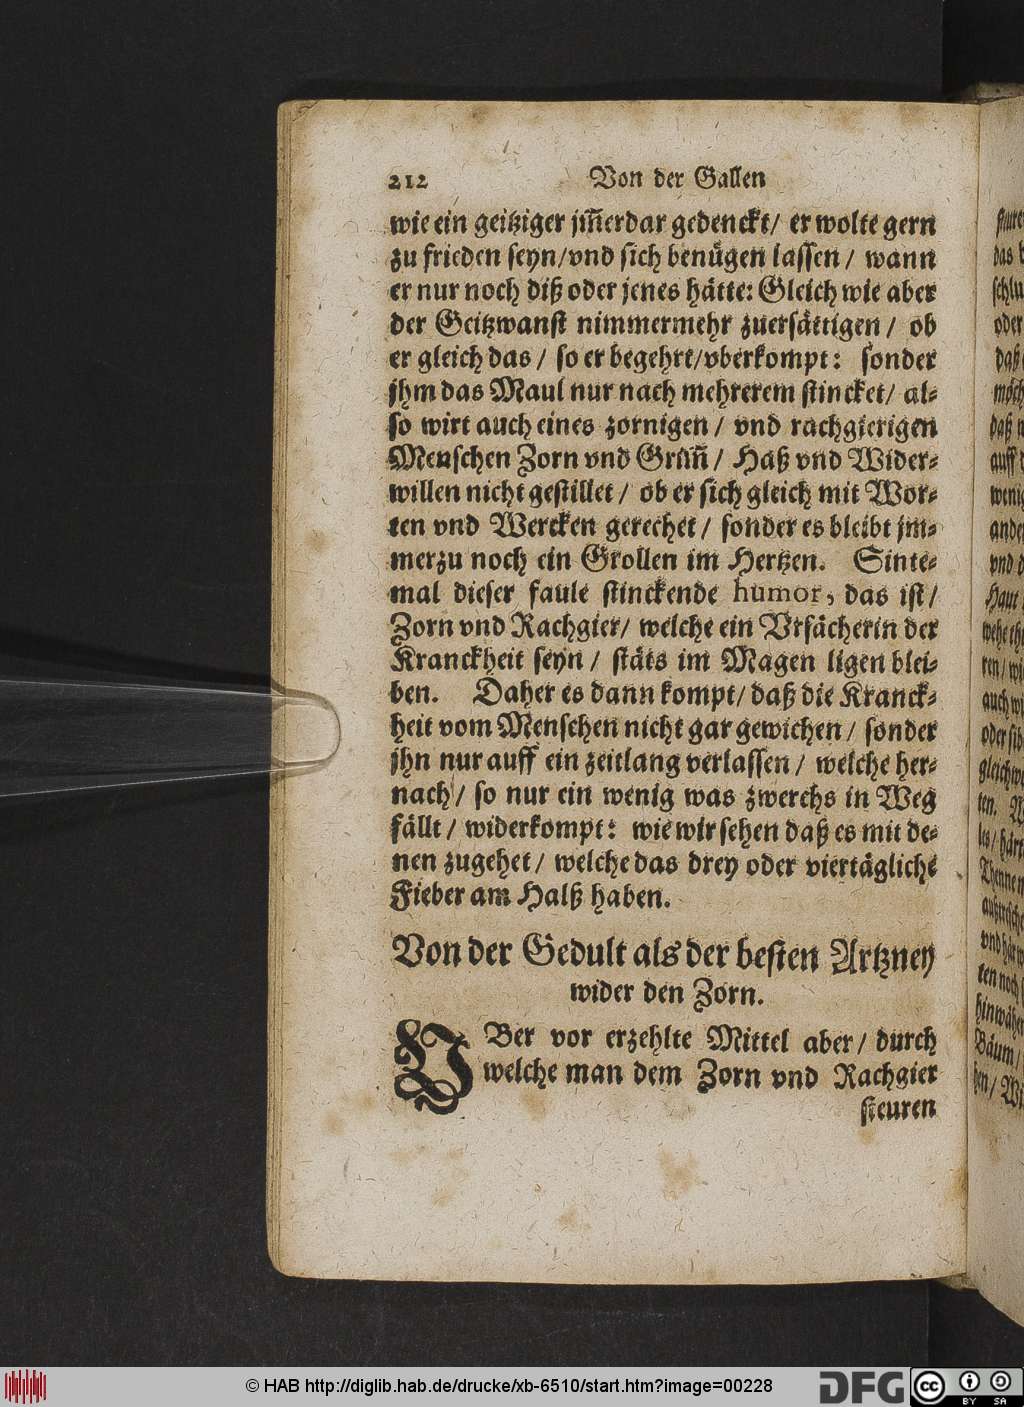 212 Von der Gallen
wie ein geitziger jm̃erdar gedenckt/ er wolte gern
zu frieden seyn/vnd sich benügen lassen / wann
er nur noch diß oder jenes hätte: Gleich wie aber
der Geitzwanst nimmermehr zuersättigen / ob
er gleich das / so er begehrt/vberkompt: sonder
jhm das Maul nur nach mehrerem stincket/ al-
so wirt auch eines zornigen / vnd rachgierigen
Menschen Zorn vnd Grim̃ / Haß vnd Wider-
willen nicht gestillet / ob er sich gleich mit Wor-
ten vnd Wercken gerechet / sonder es bleibt jm-
merzu noch ein Grollen im Hertzen. Sinte-
mal dieser faule stinckende humor, das ist /
Zorn vnd Rachgier/ welche ein Vrsächerin der
Kranckheit seyn / stäts im Magen ligen blei-
ben. Daher es dann kompt/ daß die Kranck-
heit vom Menschen nicht gar gewichen / sonder
jhn nur auff ein zeitlang verlassen / welche her-
nach / so nur ein wenig was zwerchs in Weg
fällt / widerkompt: wie wir sehen daß es mit de-
nen zugehet / welche das drey oder viertägliche
Fieber am Halß haben.
Von der Gedult als der besten Artzney
wider den Zorn.
VBer vor erzehlte Mittel aber / durch
welche man dem Zorn vnd Rachgier
steuren
das
oder
daß
auff
wenig
vnd
Haut
ten.
Bäum /
© HAB http://diglib.hab.de/drucke/xb-6510/start.htm?image=00228
DFG
cc BY SA